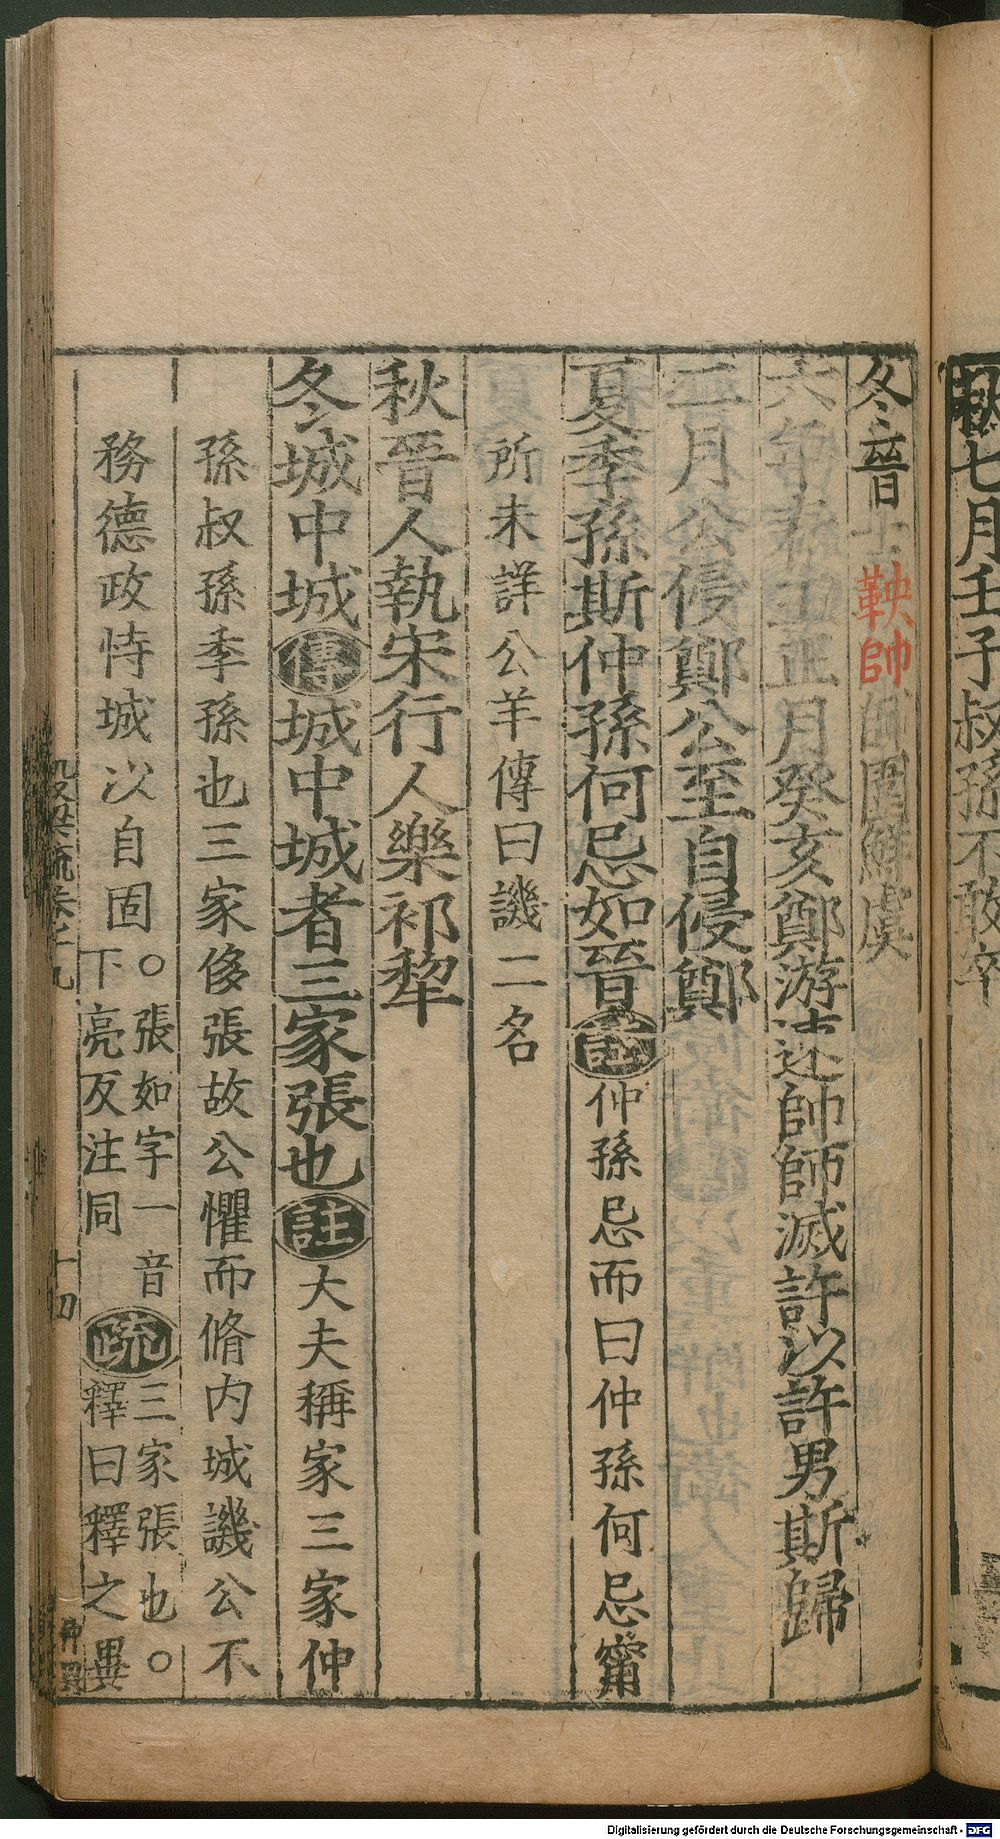 秋七月壬子叔孫不敢卒
冬晉士鞅帥師圍鮮虞
六年春王正月癸亥鄭游速帥師滅許以許男斯歸
二月公侵鄭公至自侵鄭
夏季孫斯仲孫何忌如晉註仲孫忌而曰仲孫何忌甯
所未詳公羊傳曰譏二名
秋晉人執宋行人樂祁犂
冬城中城傳城中城者三家張也註大夫稱家三家仲
孫叔孫季孫也三家侈張故公懼而脩內城譏公不
務德政恃城以自固○張如字一音
下亮反注同
疏三家張也○
釋曰釋之異
穀梁疏卷十九
十四
Digitalisierung gefördert durch die Deutsche Forschungsgemeinschaft - DFG